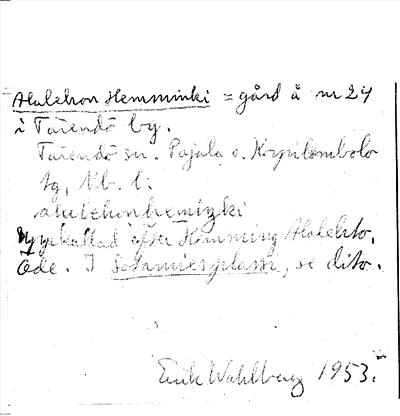 Alalehon Hemminki = gård å nr 24
i Tärendö by.
Tärendö sn. Pajala o. Korpilombolo
tg, Nb. l:
alalehon hemiŋki
Uppkallad efter Hemming Alalehto.
Öde. I Sotamiesplassi, se dito.
Erik Wahlberg 1953.